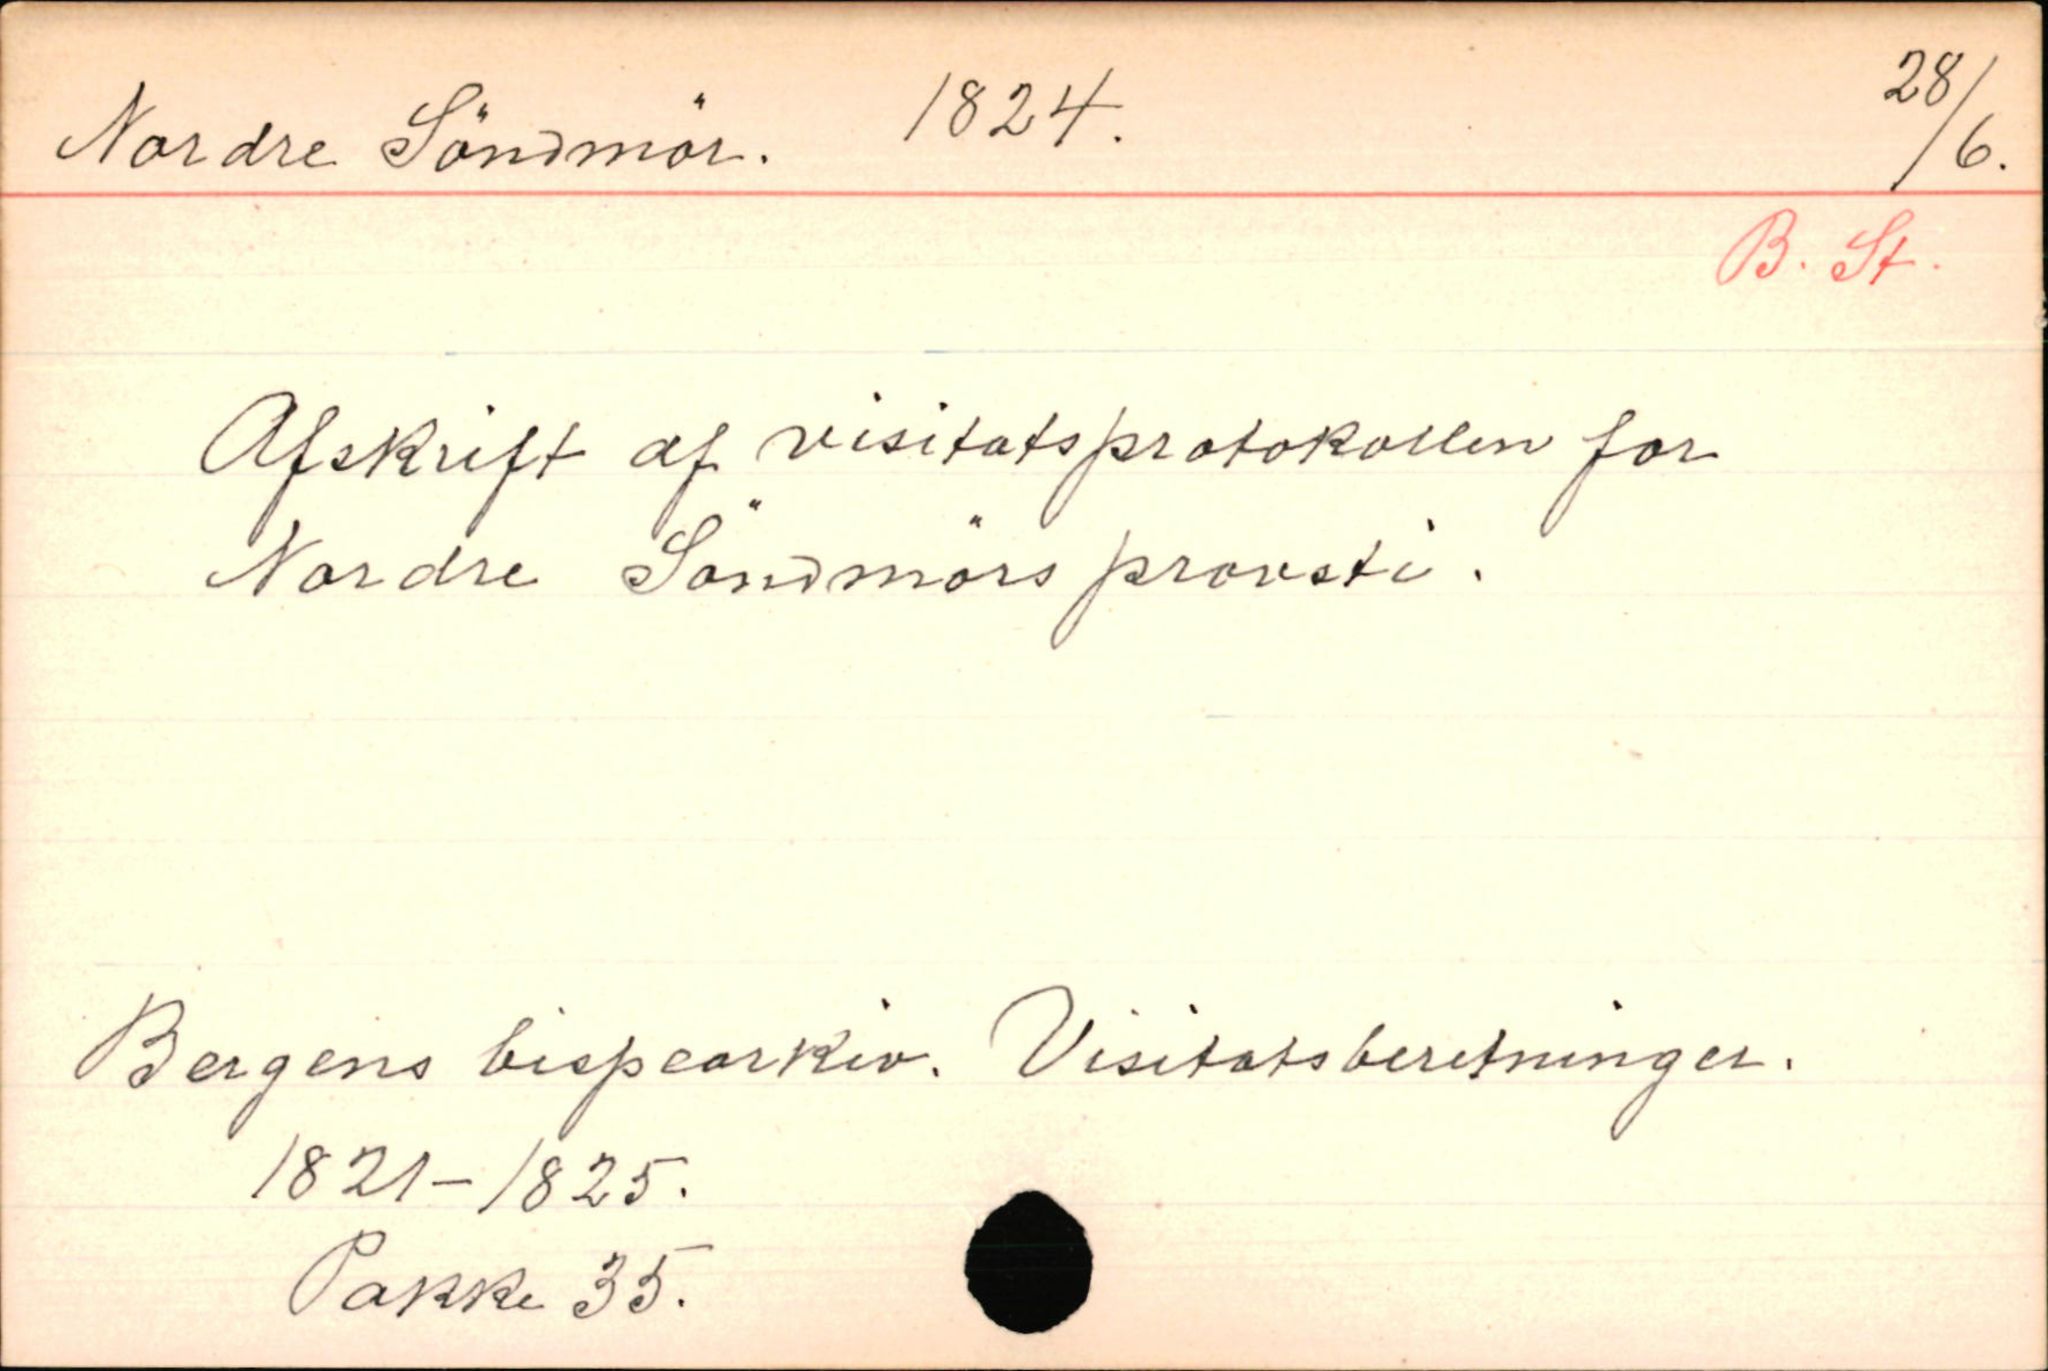 Nordre Söndmör. 1824. 28/6.
B. St.
Afskrift af visitatsprotokollen for
Nordre Söndmörs provsti.
Bergens bispearkiv. Visitatsberetninger.
1821-1825.
Pakke 35.